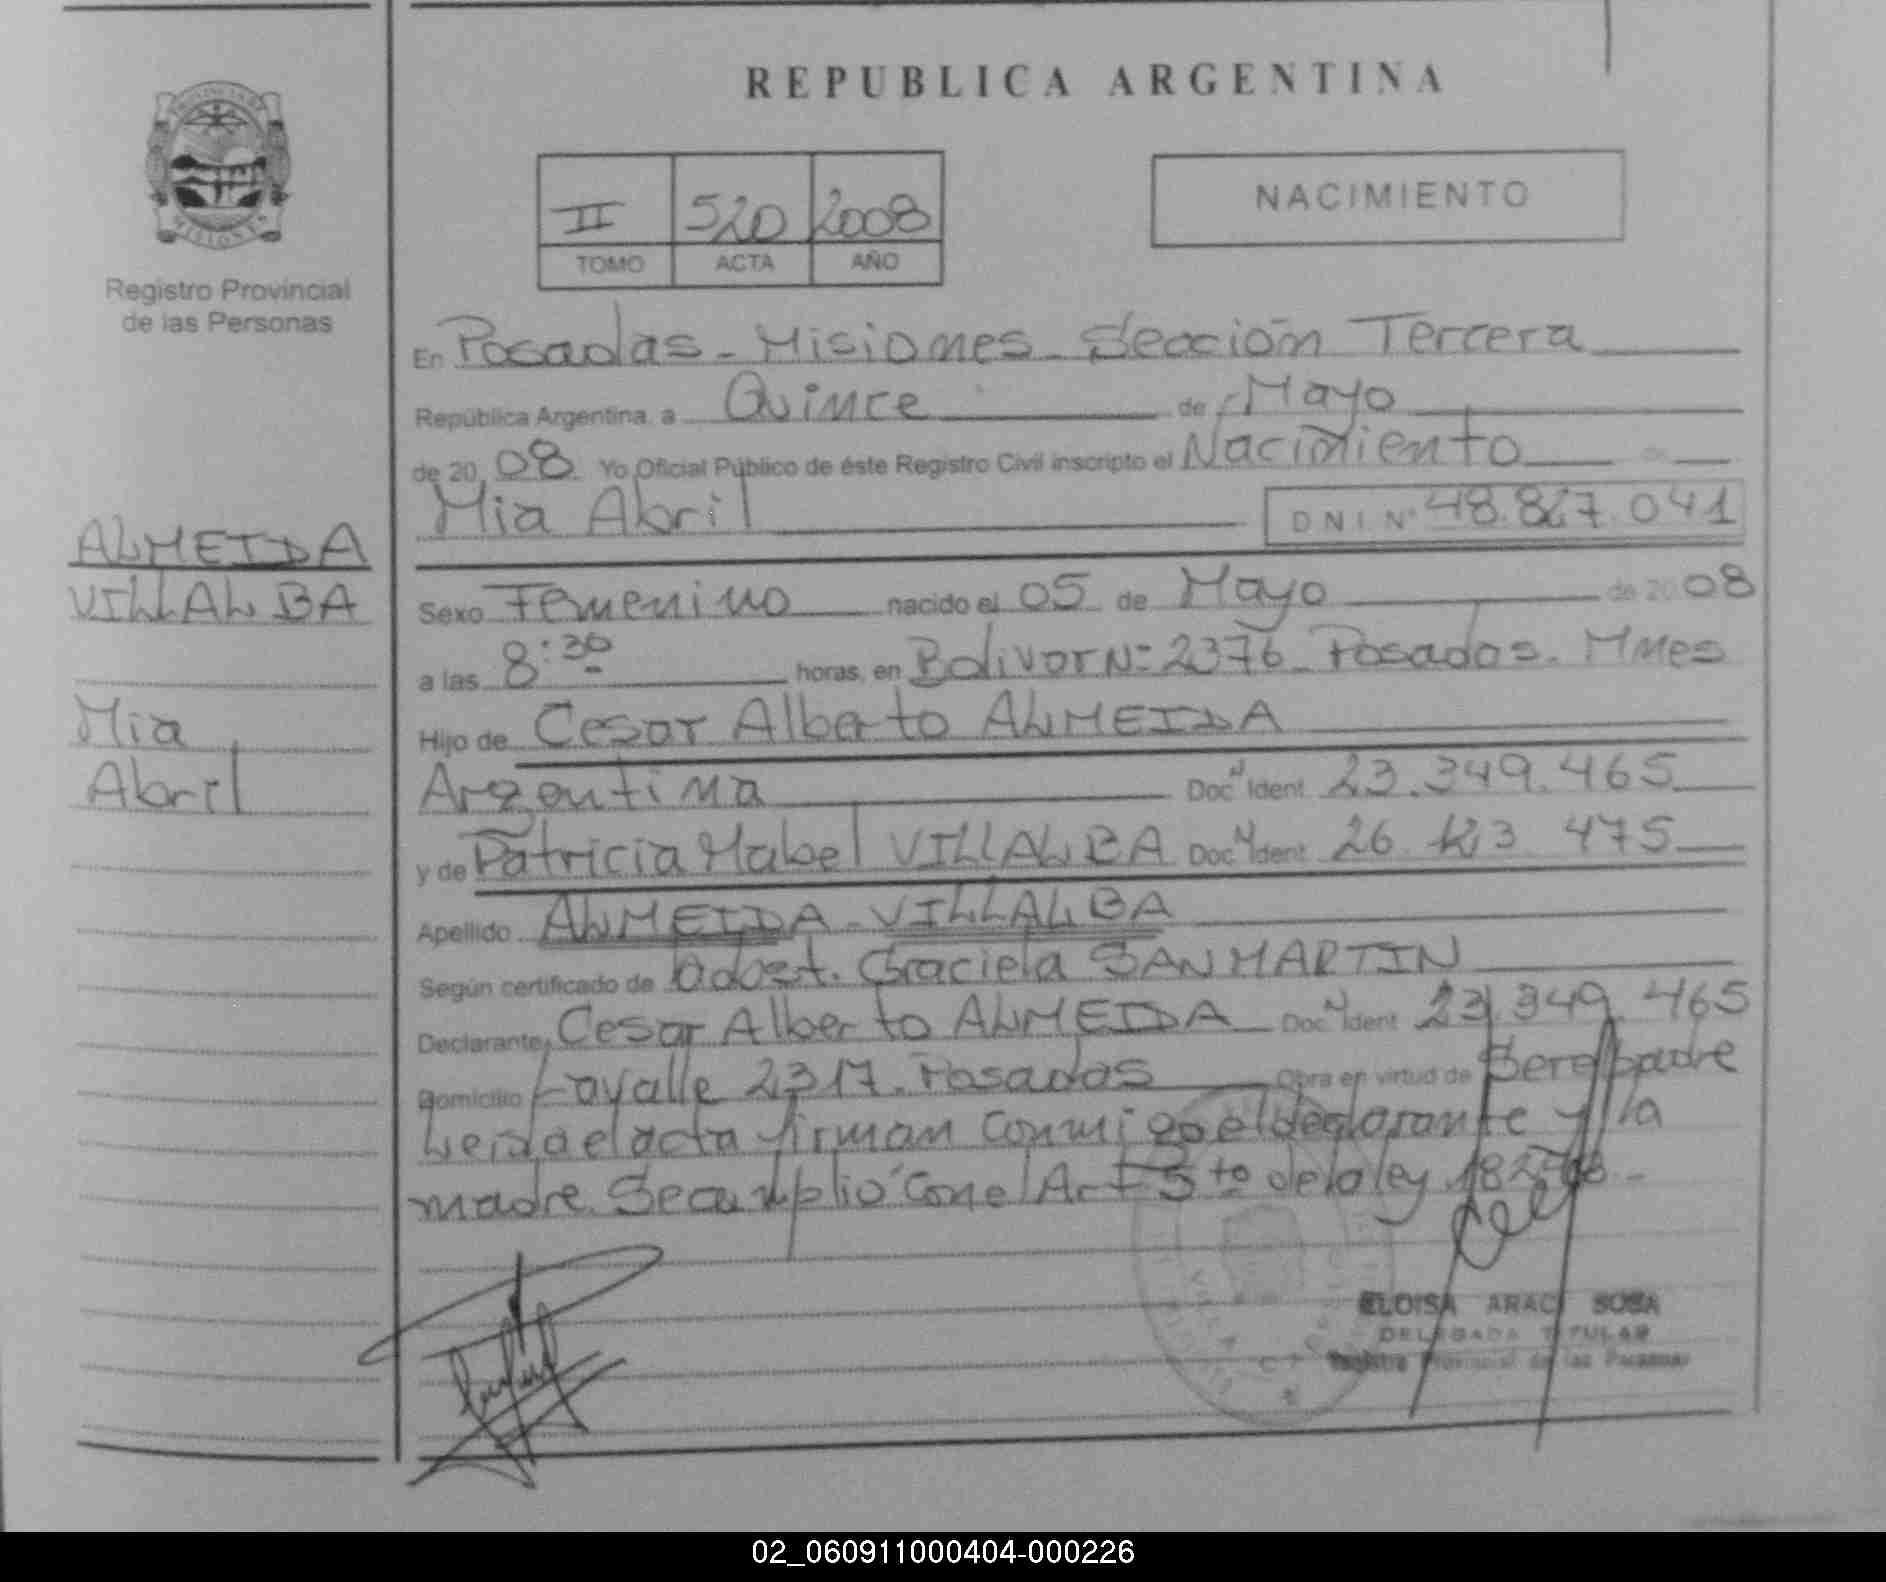 REPUBLICA ARGENTINA
PROVINCIA DE
MISIONES
Registro Provincial
de las Personas
II 520 2008
TOMO ACTA AÑO
NACIMIENTO
En Posadas - Misiones - Sección Tercera
República Argentina, a Quince de Mayo
de 20 08 Yo Oficial Público de éste Registro Civil inscripto el Nacimiento de
Mia Abril DNI Nº 48.827.041
ALMEIDA
VILLALBA
Mia
Abril
Sexo Femenino nacido el 05 de Mayo de 20 08
a las 8:30 horas, en Bolivar Nº 2376 - Posadas - Mnes
Hijo de Cesar Alberto ALMEIDA
Argentina Doc N Ident 23.349.465
y de Patricia Mabel VILLALBA Doc N Ident 26. 475
Apellido ALMEIDA - VILLALBA
Según certificado de Obst. Graciela SANMARTIN
Declarante Cesar Alberto ALMEIDA Doc N Ident 23.349.465
Domicilio Lavalle 2317. Posadas Obra en virtud de Ser el padre
Leida el acta firman conmigo el declarante y la
madre. Se cumplio con el Art 5to de la ley 18248.-
ELOISA ARACI SOSA
DELEGADA TITULAR
Registro Provincial de las Personas
02_060911000404-000226